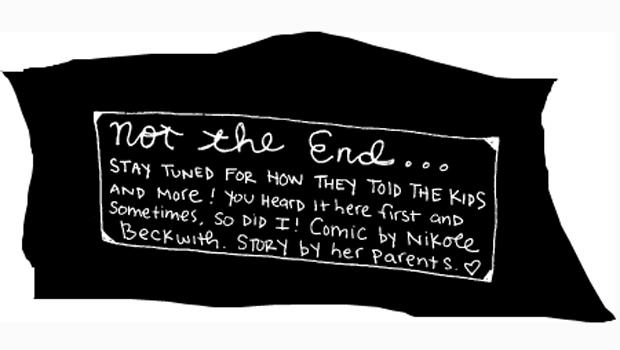 not the End...
STAY TUNED FOR HOW THEY TOLD THE KIDS
AND MORE! YOU HEARD IT HERE FIRST AND
SOMETIMES, SO DID I! COMIC BY NIKOLE
BECKWITH. STORY BY HER PARENTS. ♡